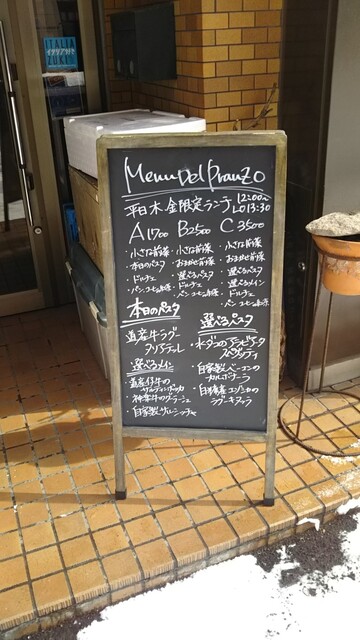 ITALIA
ZUKI
Menu Del Pranzo
平日木金限定ランチ 12:00〜
L.O13:30
A1700 B2500 C3500
・小さな前菜
・本日のパスタ
・ドルチェ
・パン、コーヒー
・小さな前菜
・おまかせ前菜
・選べるパスタ
・ドルチェ
・パン、コーヒー
・小さな前菜
・おまかせ前菜
・選べるパスタ
・選べるメイン
・ドルチェ
・パン、コーヒー
本日のパスタ
道産牛ラグー
タリアテッレ
選べるメイン
・道産仔牛の
サルティンボッカ
・神楽牛のグーラッシュ
・自家製サルシッチャ
選べるパスタ
・水ダコのアラビアータ
スパゲッティ
・自家製ベーコンの
カルボナーラ
エゾシカの
ラグーキタッラ